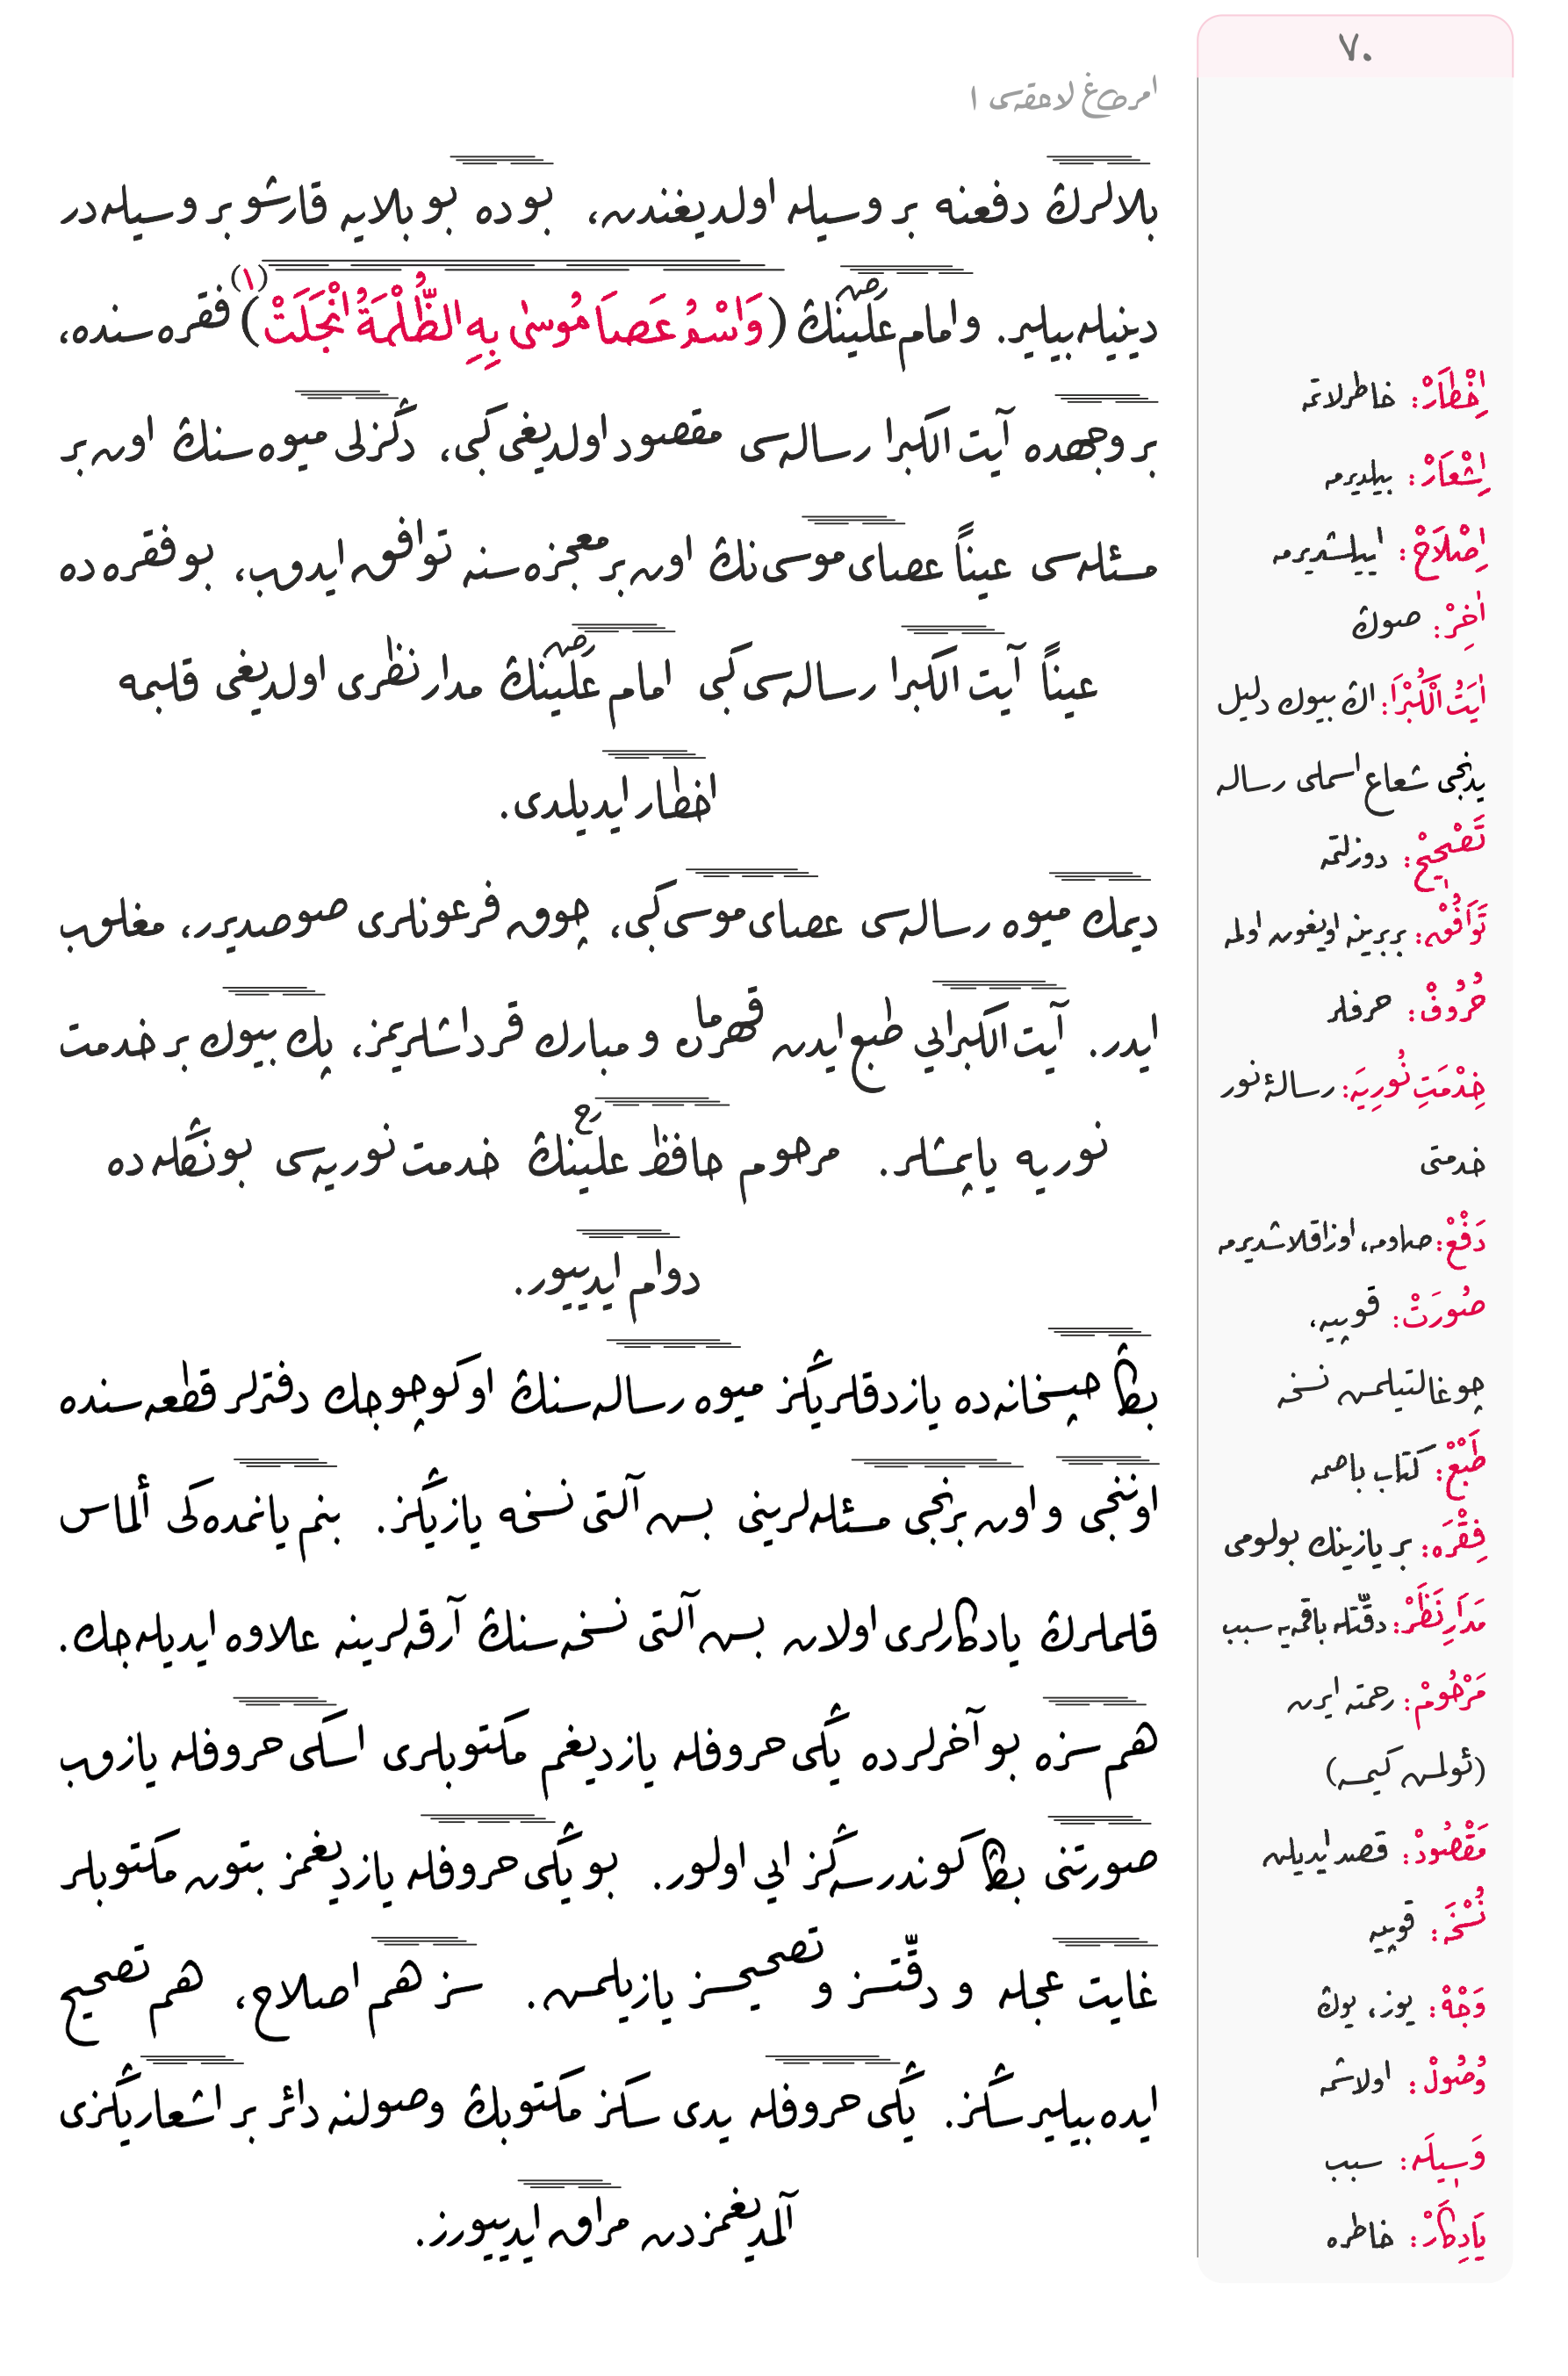 ٧٠
امرطاغ لاحقه‌سى ١
بلالرڭ دفعنه بر وسيله اولديغندن، بو ده بو بلايه قارشو بر وسيله‌در
دينيله‌بيلير. و امام عليڭ (رض) (وَاسْمُ عَصَا مُوسٰى بِهِ الظُّلْمَةُ انْجَلَتْ)(١) فقره‌سنده،
بر وجهده آيت الكبرا رساله‌سى مقصود اولديغى كبى، دڭزلى ميوه‌سنڭ اون بر
مسئله‌سى عيناً عصاى موسى‌نڭ اون بر معجزه‌سنه توافق ايدوب، بو فقره ده
عيناً آيت الكبرا رساله‌سى كبى امام علينڭ (رض) مدار نظرى اولديغى قلبمه
اخطار ايديلدى.
ديمك ميوه رساله‌سى عصاى موسى كبى، چوق فرعونلرى صوصديرر، مغلوب
ايدر. آيت الكبرايي طبع ايدن قهرمان و مبارك قرداشلريمز، پك بيوك بر خدمت
نوريه ياپمشلر. مرحوم حافظ علينڭ (رح) خدمت نوريه‌سى بونڭله ده
دوام ايدييور.
بڭا حپسخانه‌ده يازدقلريڭز ميوه رساله‌سنڭ او كوچوجك دفترلر قطعه‌سنده
اوننجى و اون برنجى مسئله‌لرينى بش آلتى نسخه يازيڭز. بنم يانمده‌كى ألماس
قلملرڭ يادكارلرى اولان بش آلتى نسخه‌سنڭ آرقه‌لرينه علاوه ايديله‌جك.
هم سزه بو آخرلرده يڭى حروفله يازديغم مكتوبلرى اسكى حروفله يازوب
صورتنى بڭا كوندرسه‌ڭز ايي اولور. بو يڭى حروفله يازديغمز بتون مكتوبلر
غايت عجله و دقّتسز و تصحيحسز يازيلمش. سز هم اصلاح، هم تصحيح
ايده‌بيليرسڭز. يڭى حروفله يدى سكز مكتوبڭ وصولنه دائر بر اشعاريڭزى
آلمديغمزدن مراق ايدييورز.
اِخْطَارْ: خاطرلاتمه
اِشْعَارْ: بيلديرمه
اِصْلَاحْ: اييلشديرمه
اٰخِرْ: صوڭ
اٰيَتُ الْكُبْرَا: اڭ بيوك دليل
يدنجى شعاع اسملى رساله
تَصْحِيحْ: دوزلتمه
تَوَافُقْ: بربرينه اويغون اولمه
حُرُوفْ: حرفلر
خِدْمَتِ نُورِيَه: رسالۀ نور
خدمتى
دَفْعْ: صاومه، اوزاقلاشديرمه
صُورَتْ: قوپيه،
چوغالتيلمش نسخه
طَبْعْ: كتاب باصمه
فِقْرَه: بر يازينك بولومى
مَدَارِ نَظَرْ: دقّتله باقمه‌يه سبب
مَرْحُومْ: رحمته ايرن
(ئولمش كيمسه)
مَقْصُودْ: قصد ايديلن
نُسْخَه: قوپيه
وَجْهْ: يوز، يوڭ
وُصُولْ: اولاشمه
وَسِيلَه: سبب
يَادِكَارْ: خاطره